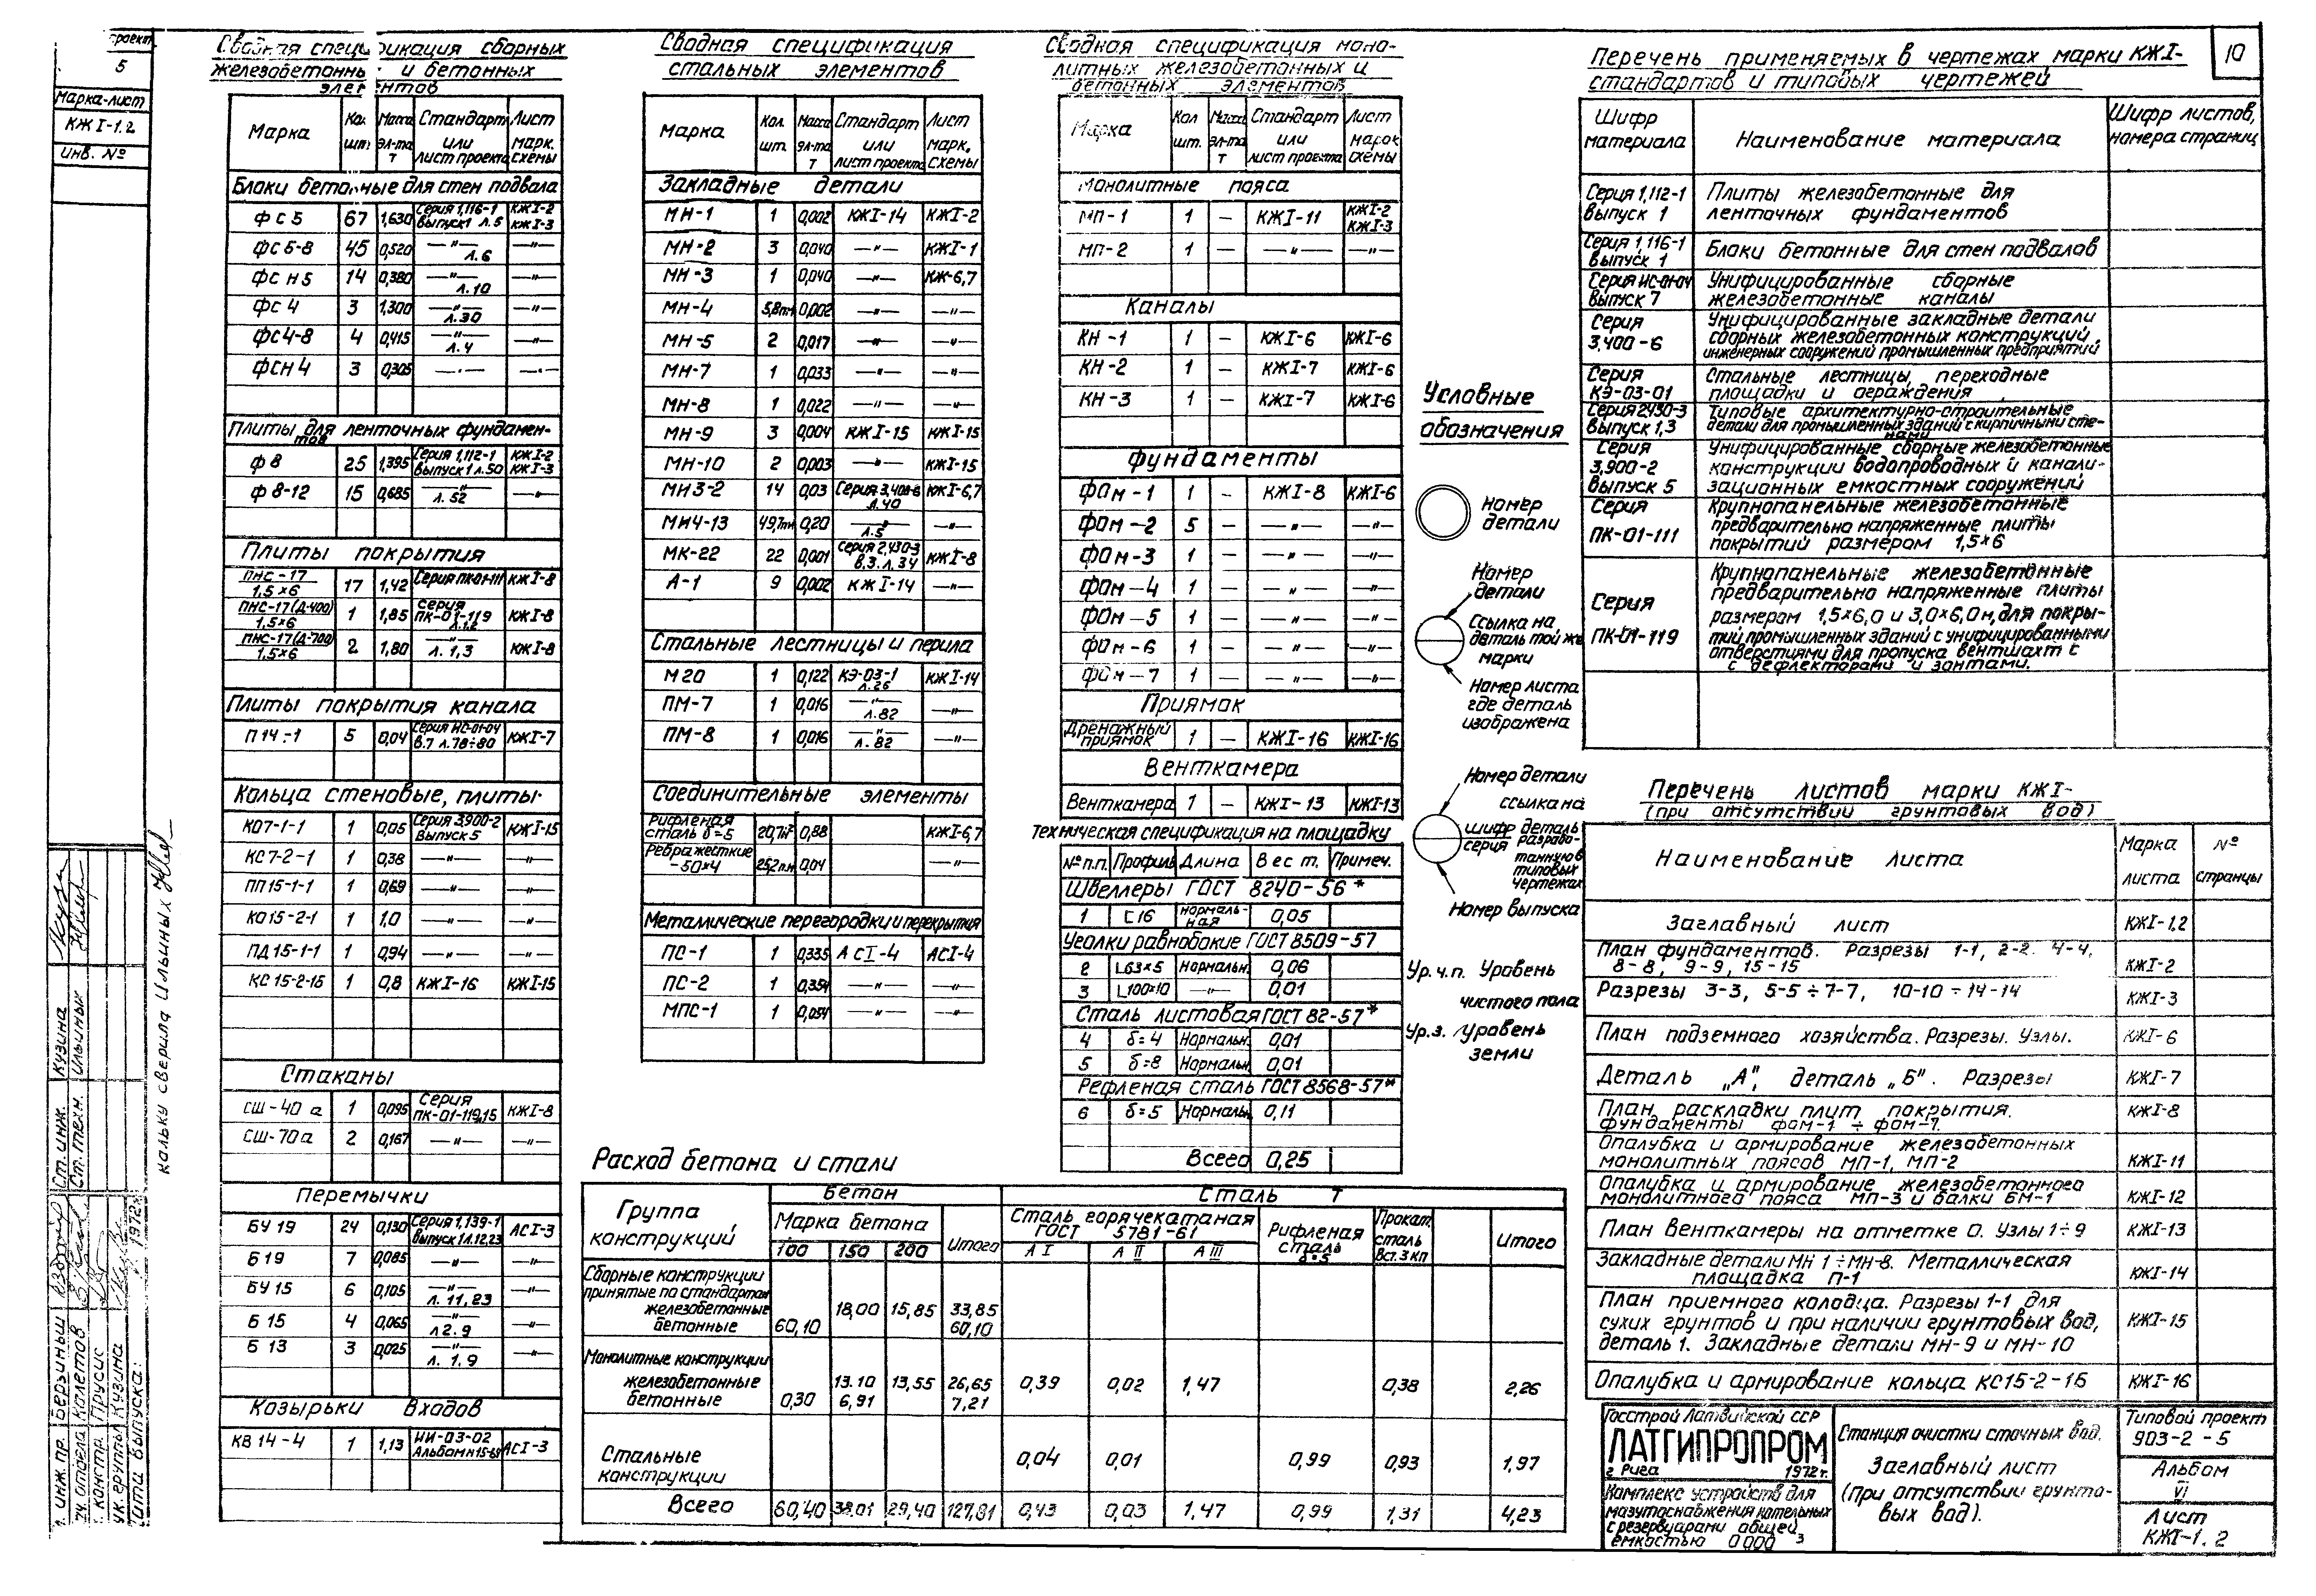 проект
5
Марка-лист
КЖI-1.2
Инв. №
Сводная спецификация сборных
железобетонных и бетонных
элементов
Марка Кол. шт. Масса эл-та т Стандарт или лист проекта Лист марк. схемы
Блоки бетонные для стен подвала
ФС5 67 1,630 Серия 1,116-1 выпуск1 л.5 КЖI-2 КЖI-3
ФС5-8 45 0,520 —"— л.6 —"—
ФСН5 14 0,380 —"— л.10 —"—
ФС4 3 1,300 —"— л.30 —"—
ФС4-8 4 0,415 —"— л.4 —"—
ФСН4 3 0,305 —"— —"—
Плиты для ленточных фундамен-
тов
Ф8 25 1,395 Серия 1,112-1 выпуск 1 л.50 КЖI-2 КЖI-3
Ф8-12 15 0,685 —"— л.52 —"—
Плиты покрытия
ПНС-17 1,5×6 17 1,42 Серия ПК01-111 КЖI-8
ПНС-17(Д-400) 1,5×6 1 1,85 Серия ПК-01-119 л.1,2 КЖI-8
ПНС-17(Д-700) 1,5×6 2 1,80 —"— л.1,3 КЖI-8
Плиты покрытия канала
П14-1 5 0,04 Серия ИС-01-04 в.7 л.78÷80 КЖI-7
Кольца стеновые, плиты
КО7-1-1 1 0,05 Серия 3,900-2 выпуск 5 КЖI-15
КС7-2-1 1 0,38 —"— —"—
ПП15-1-1 1 0,69 —"— —"—
КО15-2-1 1 1,0 —"— —"—
ПД15-1-1 1 0,94 —"— —"—
КС15-2-1б 1 0,8 КЖI-16 КЖI-15
Стаканы
СШ-40а 1 0,095 Серия ПК-01-119,15 КЖI-8
СШ-70а 2 0,167 —"— —"—
Перемычки
БУ19 24 0,130 Серия 1,139-1 выпуск 1 л.12,23 АСI-3
Б19 7 0,085 —"— —"—
БУ15 6 0,105 —"— л.11,23 —"—
Б15 4 0,065 —"— л2.9 —"—
Б13 3 0,025 —"— л.1.9 —"—
Козырьки входов
КВ14-4 1 1,13 ИИ-03-02 АСI-3
Сводная спецификация
стальных элементов
Марка Кол. шт. Масса эл-та т Стандарт или лист проекта Лист марк. схемы
Закладные детали
МН-1 1 0,002 КЖI-14 КЖI-2
МН-2 3 0,040 —"— КЖI-1
МН-3 1 0,040 —"— КЖ-6,7
МН-4 5,8пм 0,002 —"— —"—
МН-5 2 0,017 —"— —"—
МН-7 1 0,033 —"— —"—
МН-8 1 0,022 —"— —"—
МН-9 3 0,004 КЖI-15 КЖI-15
МН-10 2 0,003 —"— КЖI-15
МИ3-2 14 0,03 Серия 3,400-6 л.40 КЖI-6,7
МИ4-13 49,7пм 0,20 —"— л.5 —"—
МК-22 22 0,001 Серия 2,430-3 в.3. л.34 КЖI-8
А-1 9 0,002 КЖI-14 —"—
Стальные лестницы и перила
М20 1 0,122 КЭ-03-1 л.26 КЖI-14
ПМ-7 1 0,016 —"— л.82 —"—
ПМ-8 1 0,016 —"— л.82 —"—
Соединительные элементы
Рифленая сталь δ=5 20,7м² 0,88 КЖI-6,7
Ребра жесткие -50×4 25,2п.м 0,04 —"—
Металлические перегородки и перекрытия
ПС-1 1 0,335 АСI-4 АСI-4
ПС-2 1 0,354 —"— —"—
МПС-1 1 0,054 —"— —"—
Сводная спецификация моно-
литных железобетонных и
бетонных элементов
Марка Кол шт. Масса эл-та т Стандарт или лист проекта Лист марок схемы
Монолитные пояса
МП-1 1 — КЖI-11 КЖI-2 КЖI-3
МП-2 1 — —"— —"—
Каналы
КН-1 1 — КЖI-6 КЖI-6
КН-2 1 — КЖI-7 КЖI-6
КН-3 1 — КЖI-7 КЖI-6
Фундаменты
ФОм-1 1 — КЖI-8 КЖI-6
ФОм-2 5 — —"— —"—
ФОм-3 1 — —"— —"—
ФОм-4 1 — —"— —"—
ФОм-5 1 — —"— —"—
ФОм-6 1 — —"— —"—
ФОм-7 1 — —"— —"—
Приямок
Дренажный приямок 1 — КЖI-16 КЖI-16
Венткамера
Венткамера 1 — КЖI-13 КЖI-13
Техническая спецификация на площадку
№ п.п. Профиль Длина Вес т. Примеч.
Швеллеры ГОСТ 8240-56*
1 [16 нормаль-ная 0,05
Уголки равнобокие ГОСТ 8509-57
2 L63×5 Нормальн. 0,06
3 L100×10 —"— 0,01
Сталь листовая ГОСТ 82-57*
4 δ=4 Нормальн. 0,01
5 δ=8 Нормальн. 0,01
Рифленая сталь ГОСТ 8568-57*
6 δ=5 Нормальн. 0,11
Всего 0,25
Условные
обозначения
Номер
детали
Номер
детали
Ссылка на
деталь той же
марки
Номер листа
где деталь
изображена
Номер детали
ссылка на
шифр деталь
серия разрабо-
танную в
типовых
чертежах
Номер выпуска
Ур.ч.п. Уровень
чистого пола
Ур.з. Уровень
земли
Расход бетона и стали
Группа конструкций Бетон Сталь т
Марка бетона Итого Сталь горячекатаная ГОСТ 5781-61 Рифленая сталь δ=5 Прокат. сталь Вст.3кп Итого
100 150 200 А I А II А III
Сборные конструкции
принятые по стандартам
железобетонные 18,00 15,85 33,85
бетонные 60,10 60,10
Монолитные конструкции
железобетонные 13.10 13,55 26,65 0,39 0,02 1,47 0,38 2,26
бетонные 0,30 6,91 7,21
Стальные
конструкции 0,04 0,01 0,99 0,93 1,97
Всего 60,40 38,01 29,40 127,81 0,43 0,03 1,47 0,99 1,31 4,23
10
Перечень применяемых в чертежах марки КЖI-
стандартов и типовых чертежей
Шифр материала Наименование материала Шифр листов, номера страниц
Серия 1,112-1 Плиты железобетонные для
выпуск 1 ленточных фундаментов
Серия 1,116-1 Блоки бетонные для стен подвалов
выпуск 1
Серия ИС-01-04 Унифицированные сборные
выпуск 7 железобетонные каналы
Серия Унифицированные закладные детали
3,400-6 сборных железобетонных конструкций,
инженерных сооружений промышленных предприятий
Серия Стальные лестницы, переходные
КЭ-03-01 площадки и ограждения
Серия 2430-3 Типовые архитектурно-строительные
выпуск 1,3 детали для промышленных зданий с кирпичными сте-
нами
Серия Унифицированные сборные железобетонные
3,900-2 конструкции водопроводных и канали-
выпуск 5 зационных емкостных сооружений
Серия Крупнопанельные железобетонные
предварительно напряженные плиты
ПК-01-111 покрытий размером 1,5×6
Крупнопанельные железобетонные
предварительно напряженные плиты
Серия размером 1,5×6,0 и 3,0×6,0м, для покры-
ПК-01-119 тий промышленных зданий с унифицированными
отверстиями для пропуска вентшахт с
с дефлекторами и зонтами.
Перечень листов марки КЖI-
(при отсутствии грунтовых вод)
Наименование листа Марка листа № страницы
Заглавный лист КЖI-1,2
План фундаментов. Разрезы 1-1, 2-2. 4-4,
8-8, 9-9, 15-15 КЖI-2
Разрезы 3-3, 5-5÷7-7, 10-10÷14-14 КЖI-3
План подземного хозяйства. Разрезы. Узлы. КЖI-6
Деталь „А", деталь „Б". Разрезы КЖI-7
План раскладки плит покрытия. КЖI-8
фундаменты фом-1 ÷ фом-7.
Опалубка и армирование железобетонных
монолитных поясов МП-1, МП-2 КЖI-11
Опалубка и армирование железобетонного
монолитного пояса МП-3 и балки БМ-1 КЖI-12
План венткамеры на отметке 0. Узлы 1÷9 КЖI-13
Закладные детали МН 1÷МН-8. Металлическая
площадка П-1 КЖI-14
План приемного колодца. Разрезы 1-1 для
сухих грунтов и при наличии грунтовых вод, КЖI-15
деталь 1. Закладные детали МН-9 и МН-10
Опалубка и армирование кольца КС15-2-1б КЖI-16
Госстрой Латвийской ССР
ЛАТГИПРОПРОМ
г Рига 1972 г.
Комплекс устройств для
мазутоснабжения котельных
с резервуарами общей
емкостью
Станция очистки сточных вод.
Заглавный лист
(при отсутствии грунто-
вых вод).
Типовой проект
903-2-5
Альбом
VI
Лист
КЖI-1.2
кальку сверила Ильиных
Ст. инж. Кузина
Ст. техн. Ильиных
инж. пр. Берзиньш
отдела Калетов
констр. Прусис
группы Кузина
выпуска: 1972г.